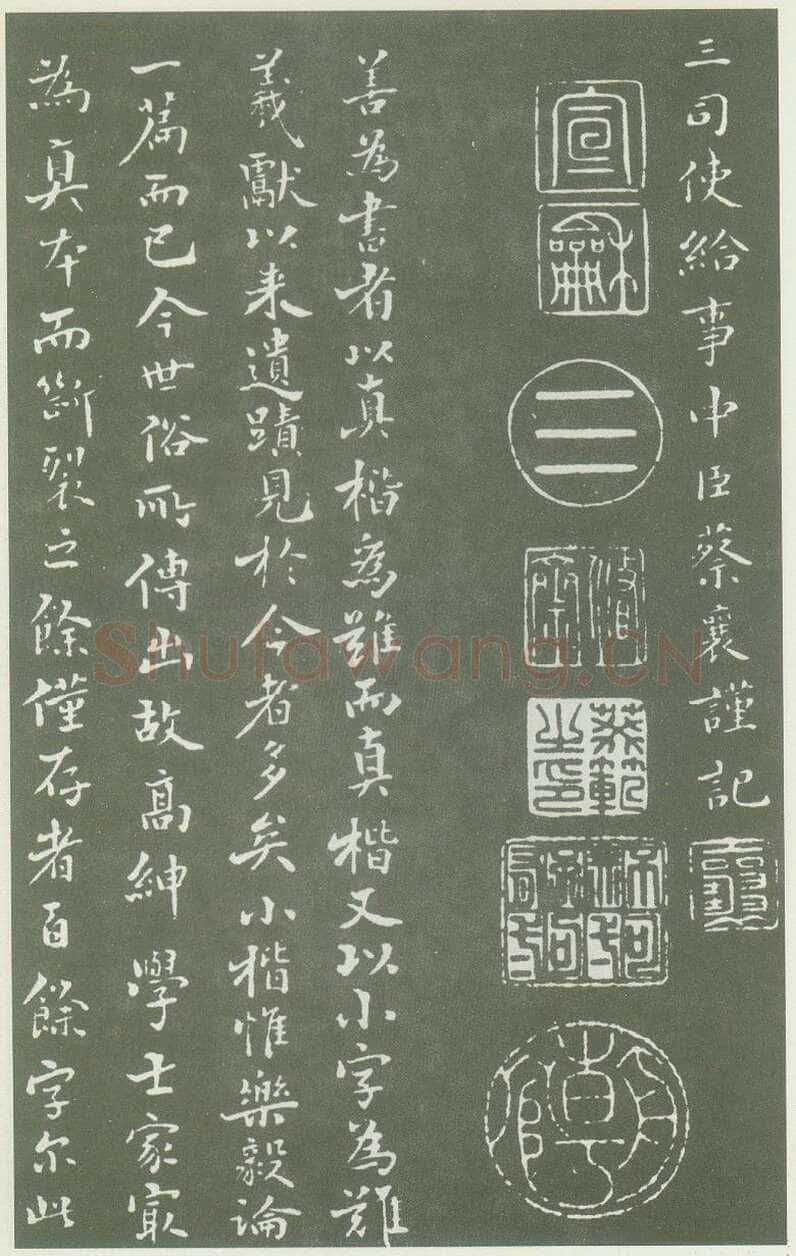 三司使給事中臣蔡襄謹記
宣
龢
善為書者以真楷為難而真楷又以小字為難
羲獻以来遺蹟見於今者多矣小楷惟樂毅論
一篇而已今世俗所傳出故髙紳學士家最
為真本而斷裂之餘僅存者百餘字尔此
Shufawang.CN